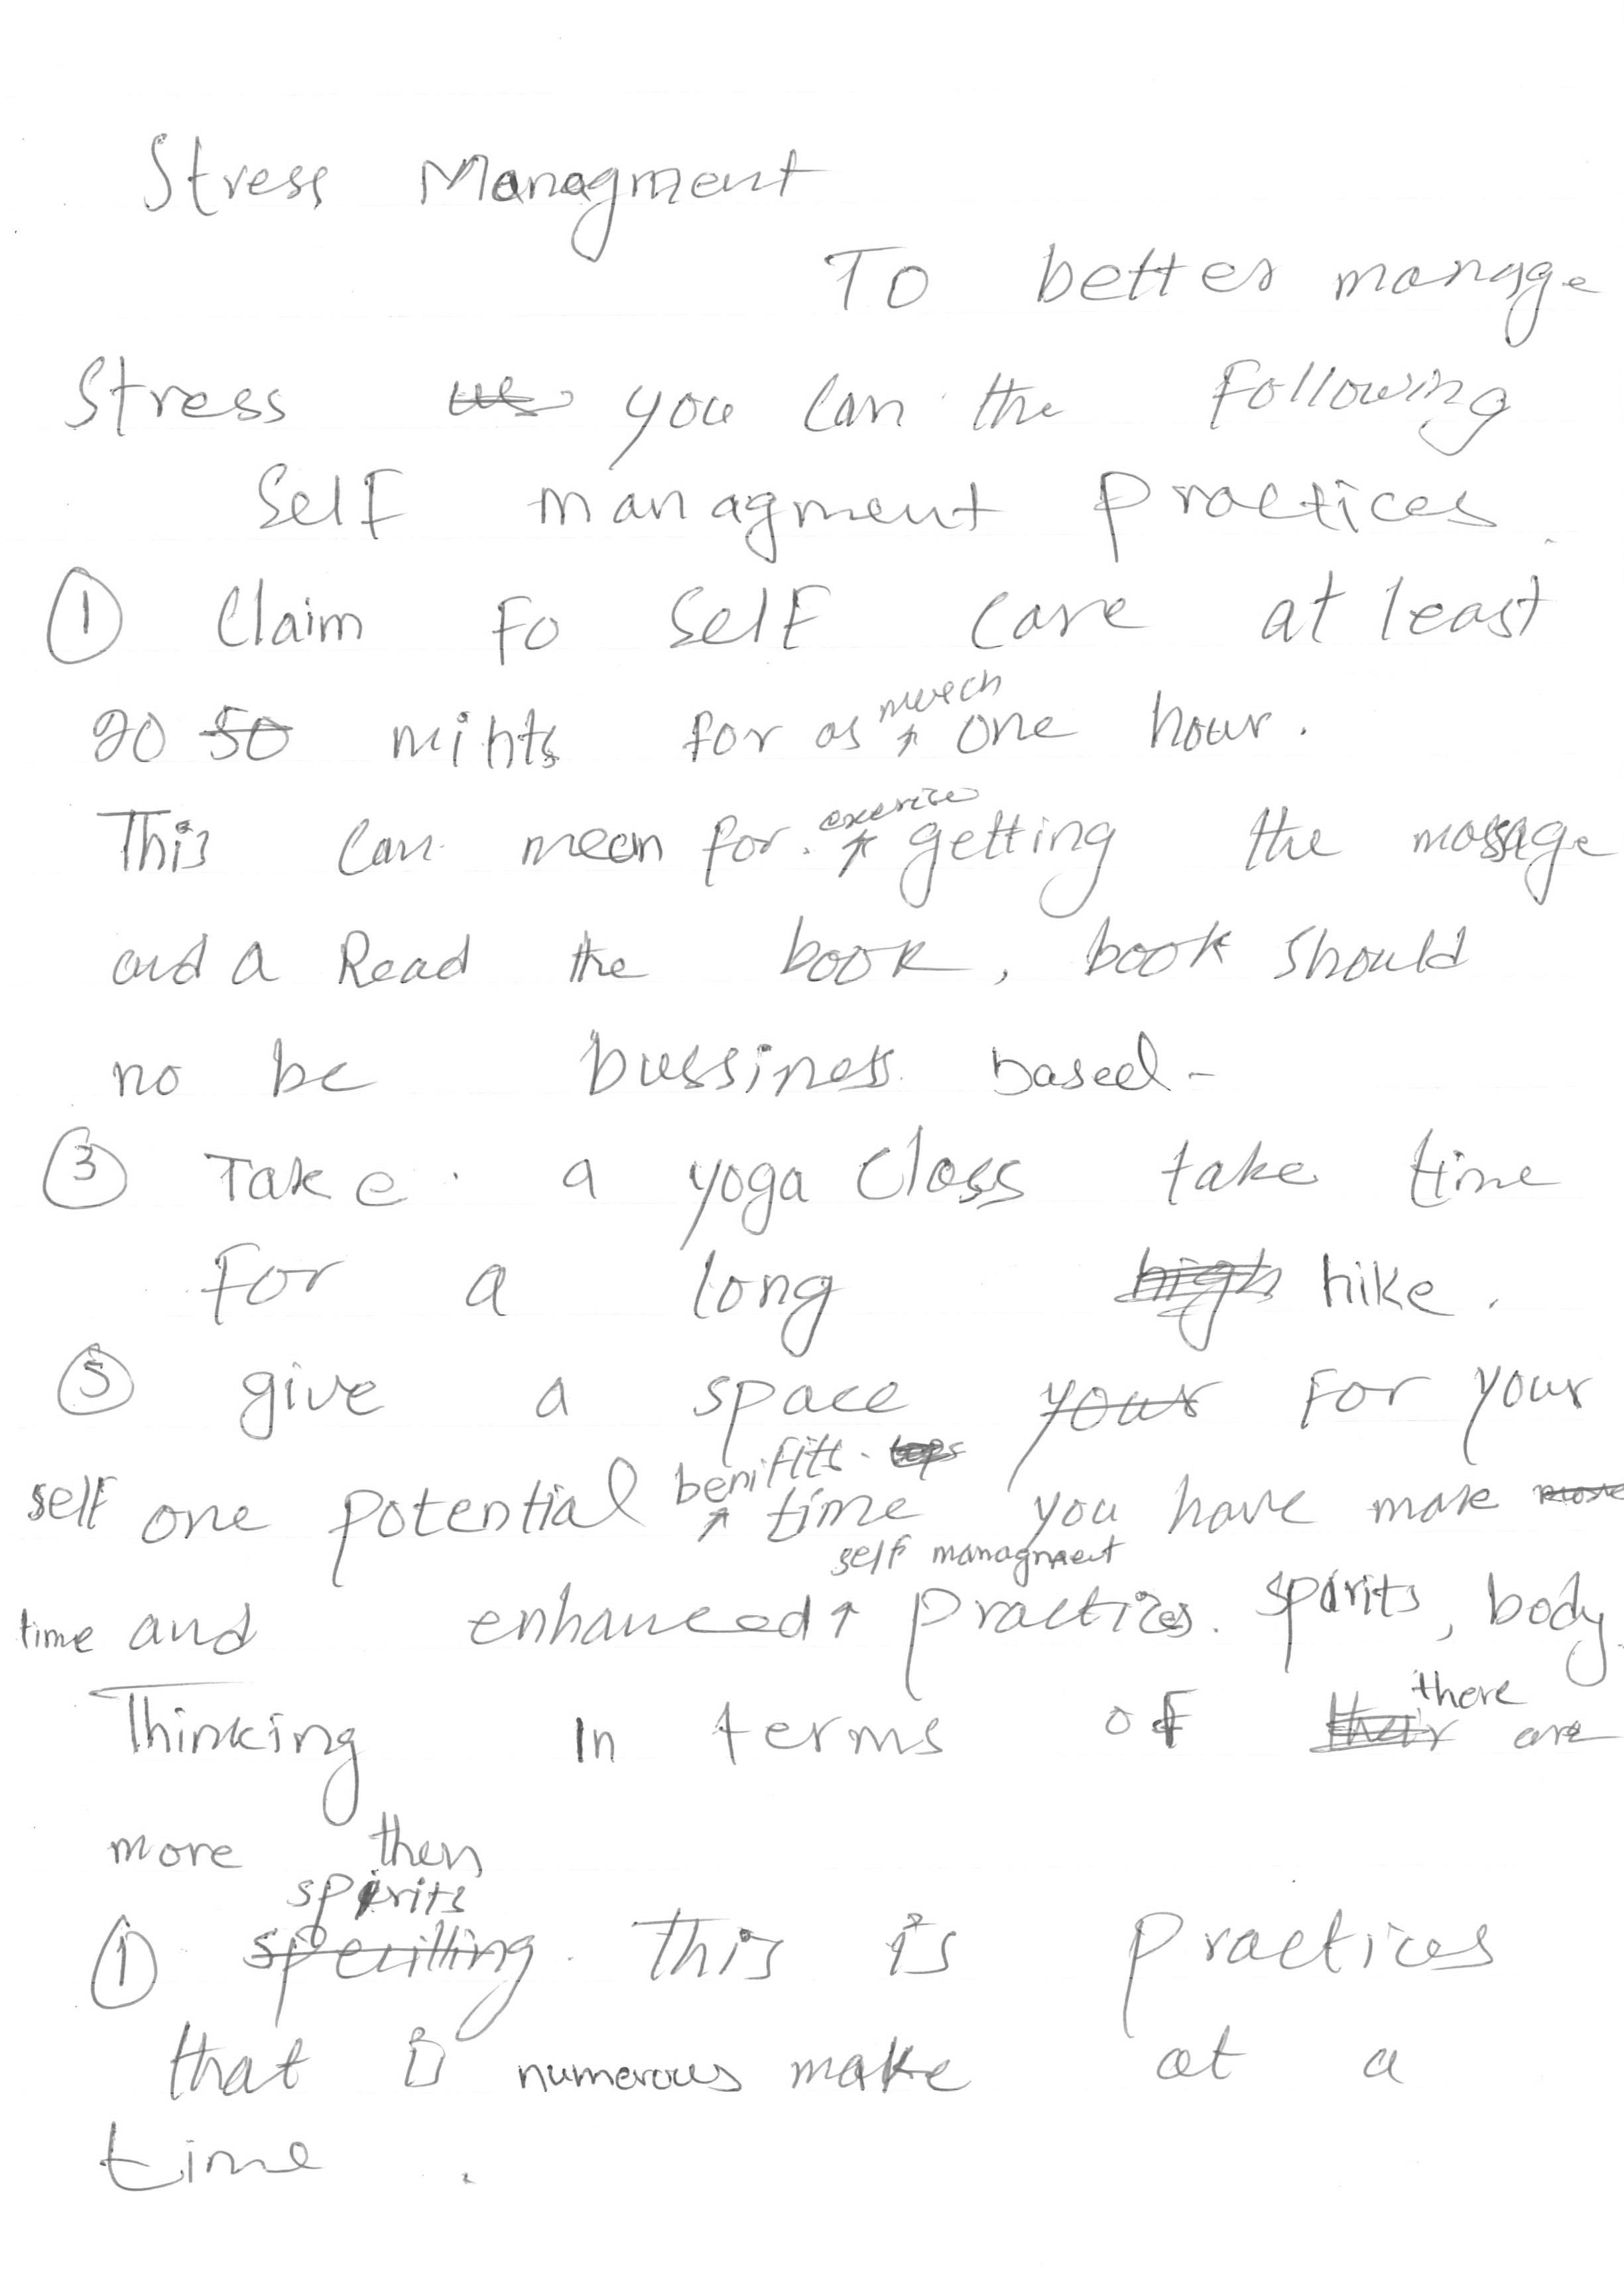 Stress Managment
To better manage
Stress you can the Following
Self managment practices.
① Claim Fo Self care at least
20 mints for as much one hour.
This can mean for. exerize getting the massage
and a Read the book, book should
no be bussiness based-
③ Take a yoga class take time
For a long hike.
⑤ give a space For your
self one potential benifitt. time you have make
time and enhanced self managment practizes. spirits, body
Thinking In terms of there are
more then
① spirits This is practices
that is numerous make at a
time.